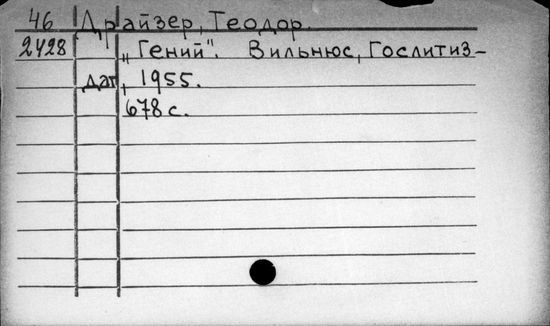 46 Драйзер, Теодор.
2428 „Гений". Вильнюс, Гослитиз-
дат, 1955.
678 с.